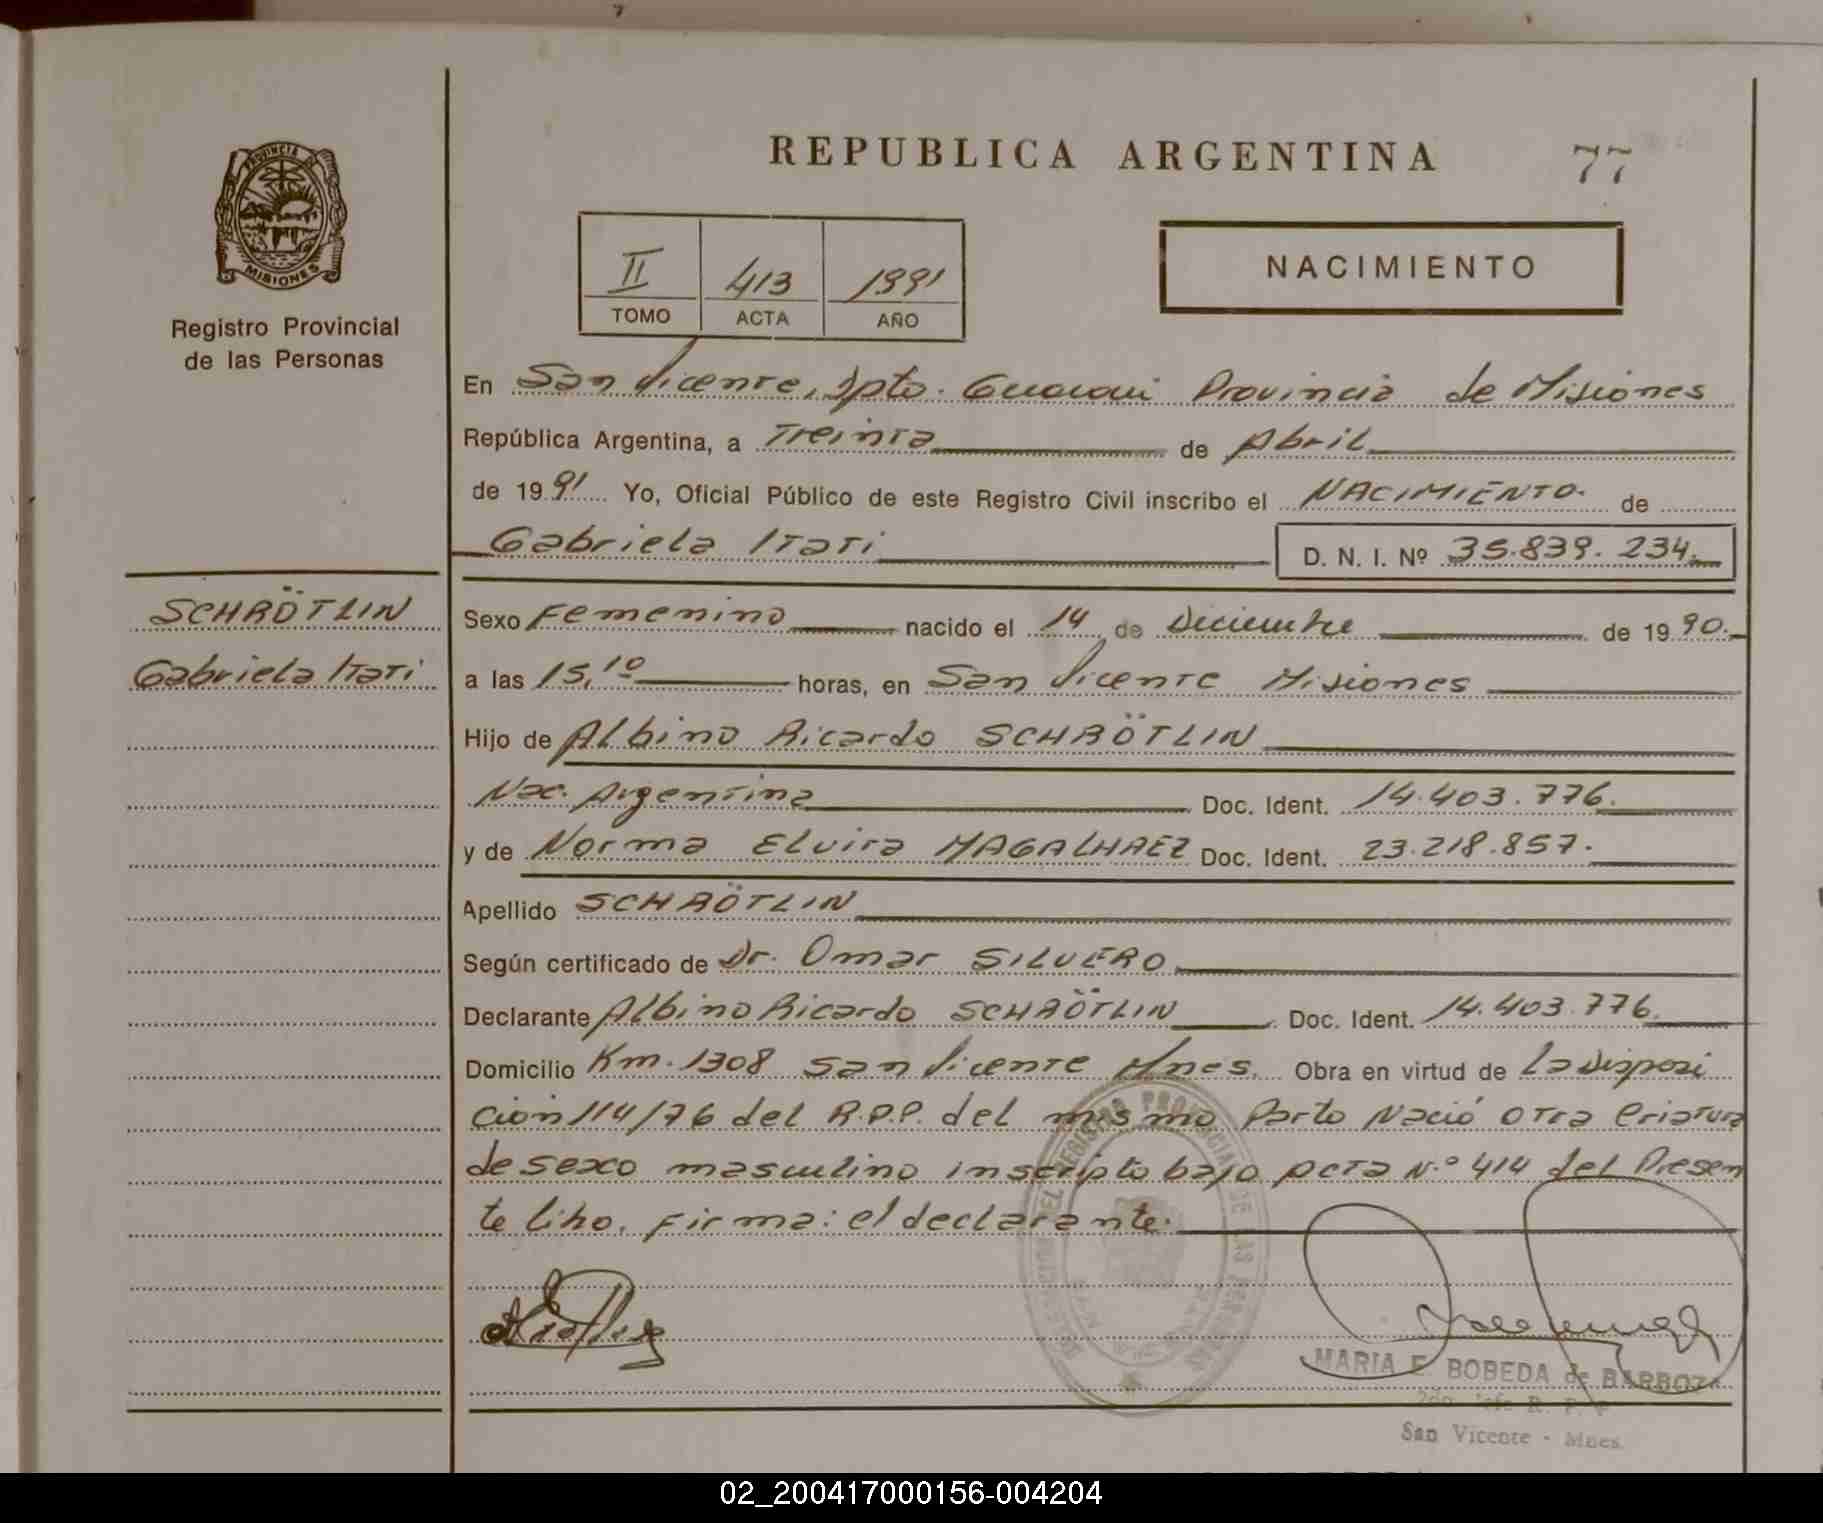 REPUBLICA ARGENTINA
77
PROVINCIA DE
MISIONES
Registro Provincial
de las Personas
II
TOMO
413
ACTA
1991
AÑO
NACIMIENTO
En San Vicente, Dpto. Guarani Provincia de Misiones
República Argentina, a Treinta de Abril
de 1991 Yo, Oficial Público de este Registro Civil inscribo el NACIMIENTO. de
Gabriela Itati D. N. I. Nº 35.839.234.
SCHRÖTLIN
Gabriela Itati
Sexo Femenino nacido el 14 de Diciembre de 1990.
a las 15,10 horas, en San Vicente Misiones
Hijo de Albino Ricardo SCHRÖTLIN
Nac. Argentina Doc. Ident. 14.403.776.
y de Norma Elvira MAGALHAEZ Doc. Ident. 23.218.857.
Apellido SCHRÖTLIN
Según certificado de Dr. Omar SILVERO
Declarante Albino Ricardo SCHRÖTLIN Doc. Ident. 14.403.776.
Domicilio Km. 1308 San Vicente Mnes. Obra en virtud de La Disposi
ción 114/76 del R.P.P. del mismo Parto Nació otra Criatura
de sexo masculino inscripto bajo Acta N.º 414 del Presen
te libro. Firma: el declarante.
MARIA E. BOBEDA de BARBOZA
San Vicente - Mnes.
02_200417000156-004204